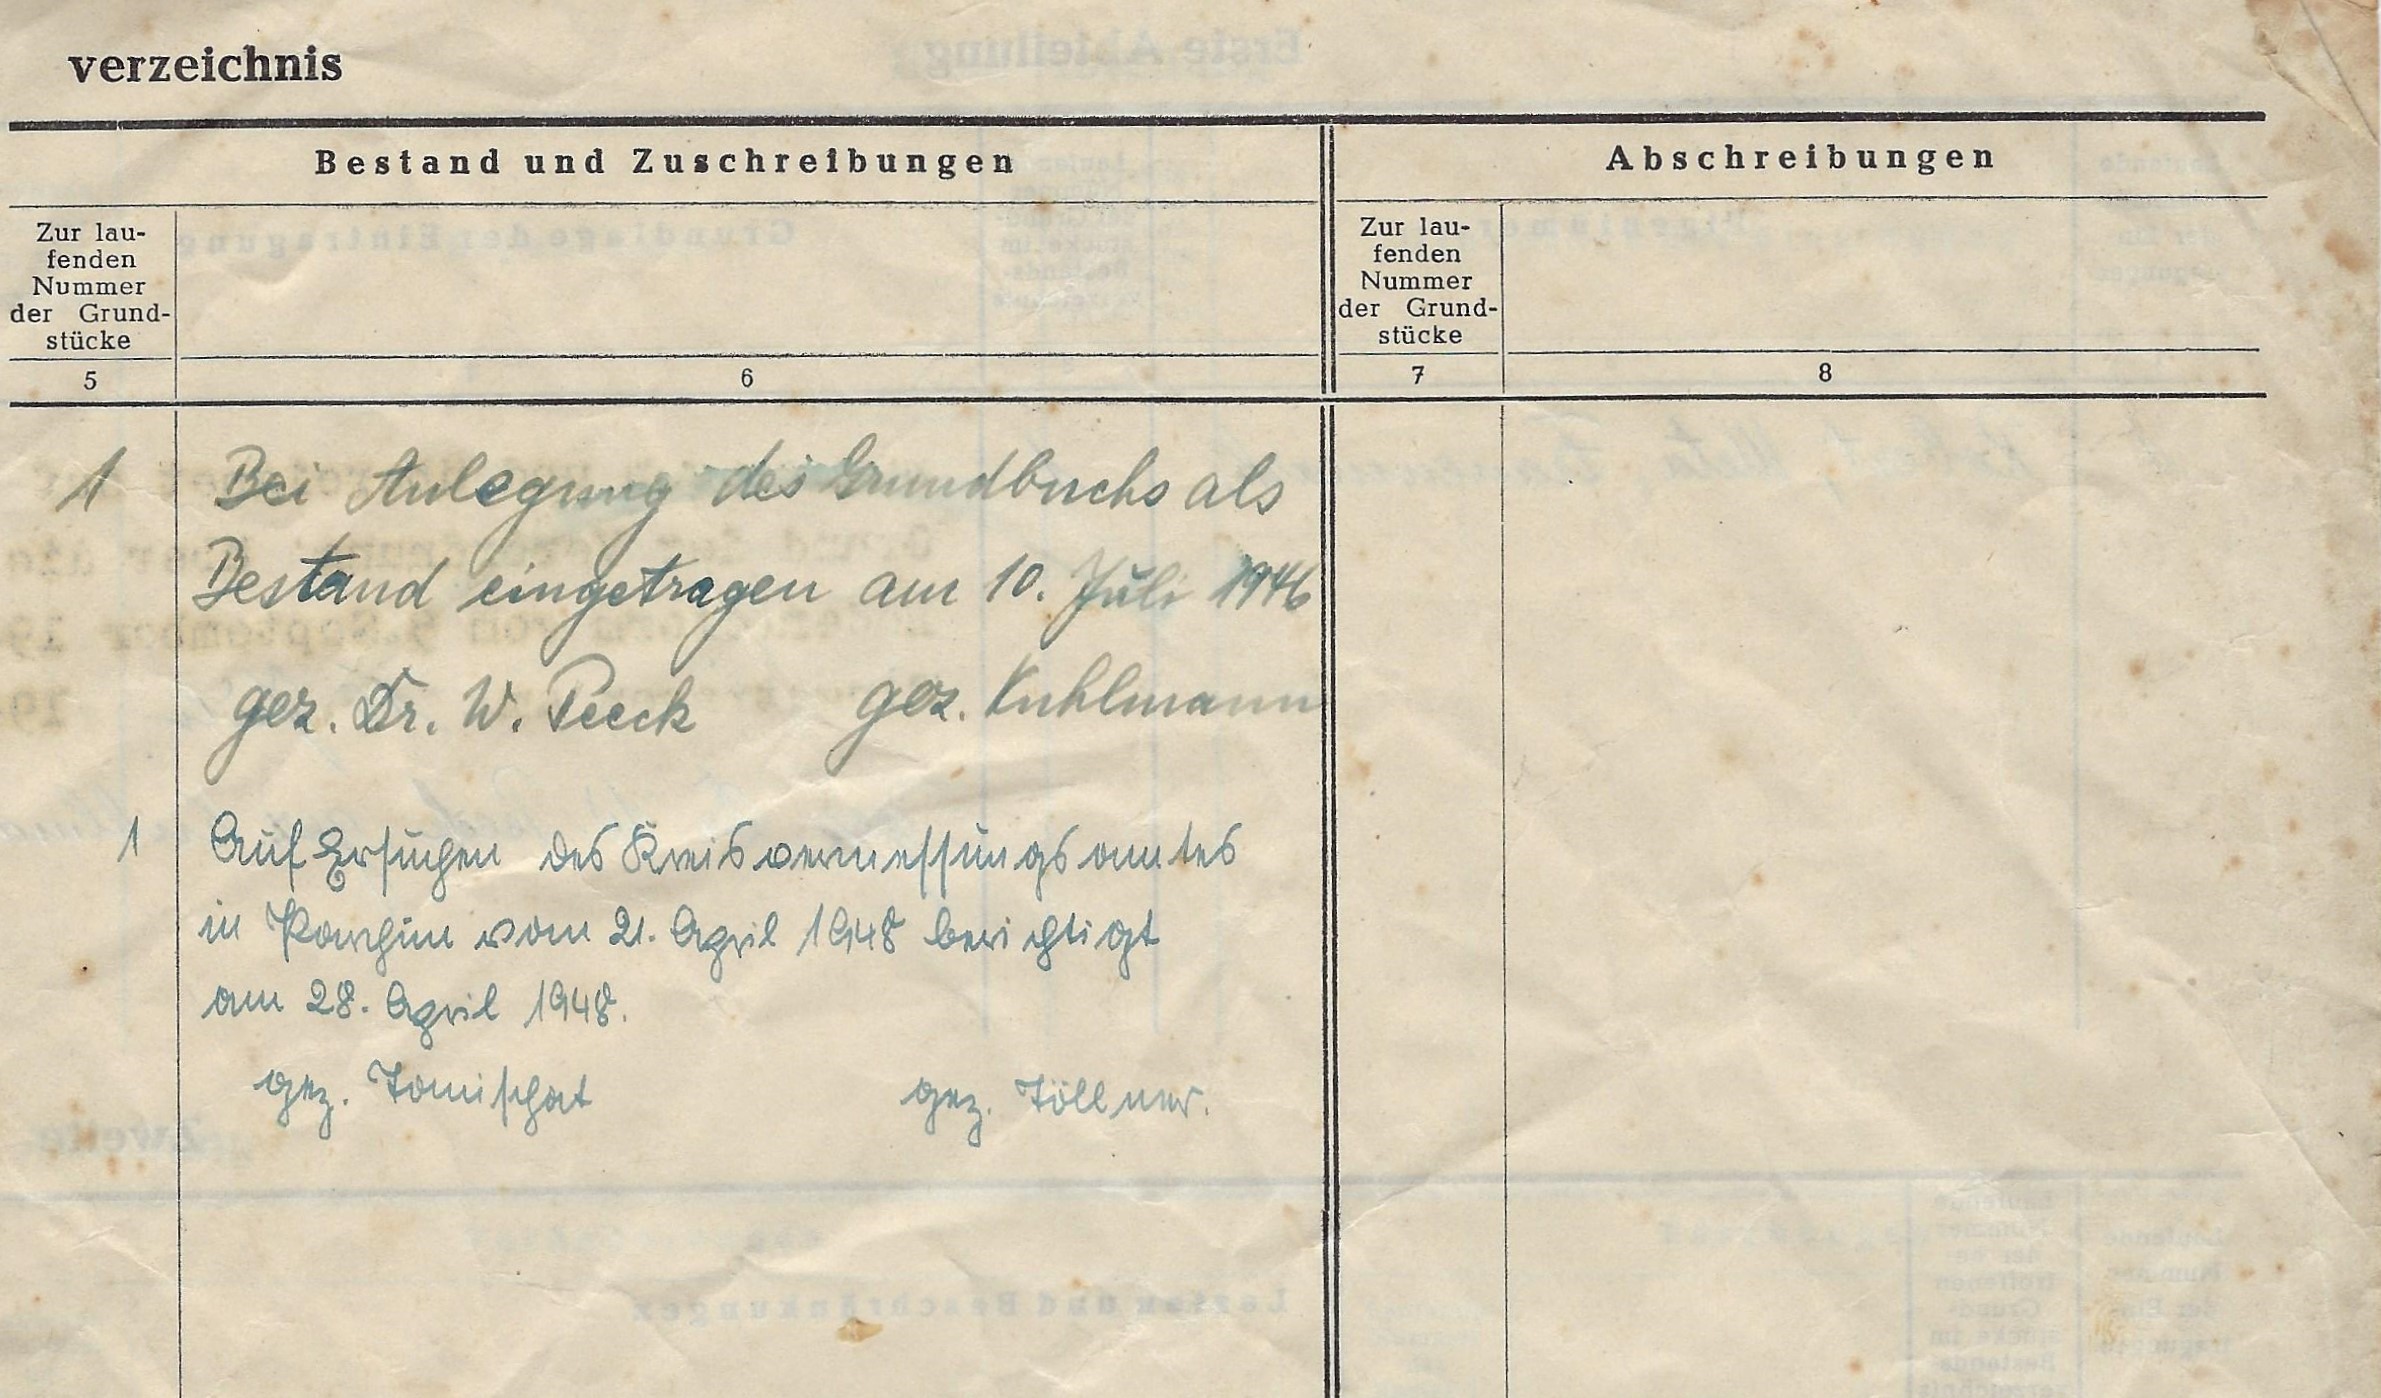 verzeichnis
Bestand und Zuschreibungen
Abschreibungen
Zur lau-
fenden
Nummer
der Grund-
stücke
Zur lau-
fenden
Nummer
der Grund-
stücke
5
6
7
8
1 Bei Anlegung des Grundbuchs als
Bestand eingetragen am 10. Juli 1946
gez. Dr. W. Peeck gez. Kuhlmann
1 Auf Ersuchen des Kreisvermessungsamtes
in Parchim vom 21. April 1948 berichtigt
am 28. April 1948.
gez. Tomischat gez. Töllner.